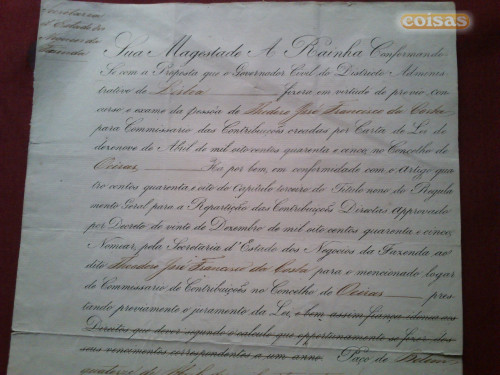 coisas
Secretaria
d'Estado dos
Negocios da
Fazenda
Sua Magestade A Rainha Conformando
Se com a Proposta que o Governador Civil do Districto Adminis-
trativo de Lisboa fizera em virtude do previo, con-
curso e exame da pessoa de Theodoro José Francisco da Costa
para Commissario das Contribuições creadas por Carta de Lei de
dezenove de Abril de mil oito centos quarenta e cinco no Concelho de
Oeiras, Ha por bem, em conformidade com o Artigo qua-
tro centos quarenta e oito do Capitulo terceiro do Titulo nono do Regula-
mento Geral para a Repartição das Contribuições Directas Approvado
por Decreto de vinte de Dezembro de mil oito centos quarenta e cinco,
Nomiar, pela Secretaria d'Estado dos Negocios da Fazenda ao
dito Theodoro José Francisco da Costa para o mencionado logar
de Commissario de Contribuições no Concelho de Oeiras pres-
tando previamente o juramento da Lei, e bem assim fiança idonea aos
Direitos que dever segundo o calculo que opportunamente se fizer dos
seus vencimentos correspondentes a um anno. Paço de Belem
de Abril de mil oito centos quarenta